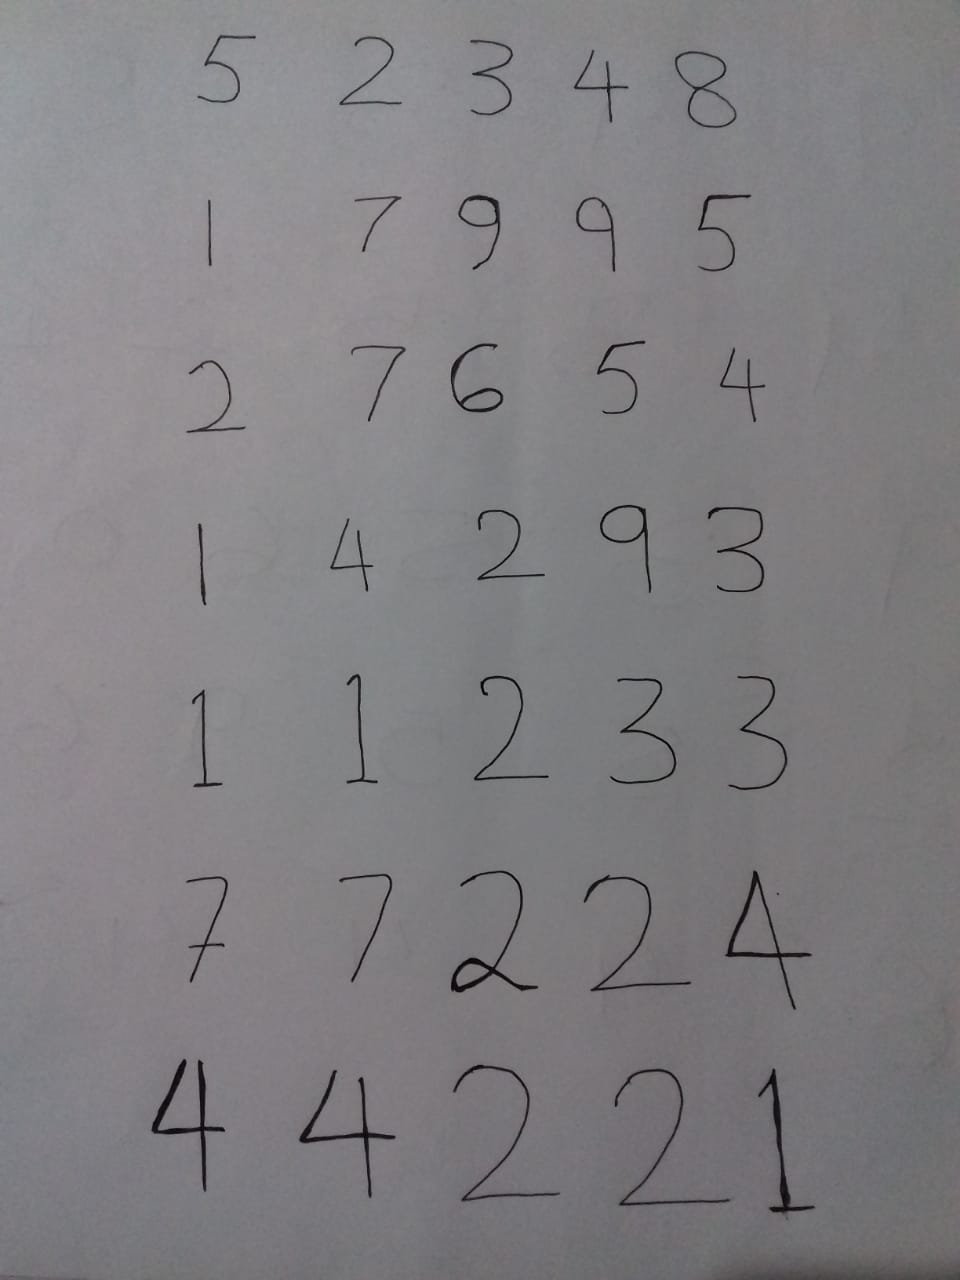 5 2 3 4 8
1 7 9 9 5
2 7 6 5 4
1 4 2 9 3
1 1 2 3 3
7 7 2 2 4
4 4 2 2 1